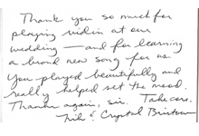 Thank you so much for
playing violin at our
wedding — and for learning
a brand new song for us.
You played beautifully and
really helped set the mood.
Thanks again, sir. Take care.
& Crystal